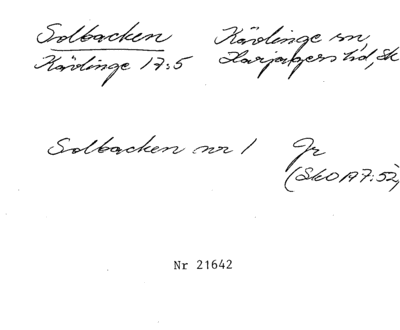 Solbacken Kävlinge sn,
Kävlinge 17:5 Harjagers hd, Sk
Solbacken nr 1 Jr
(SkO A7:52)
Nr 21642